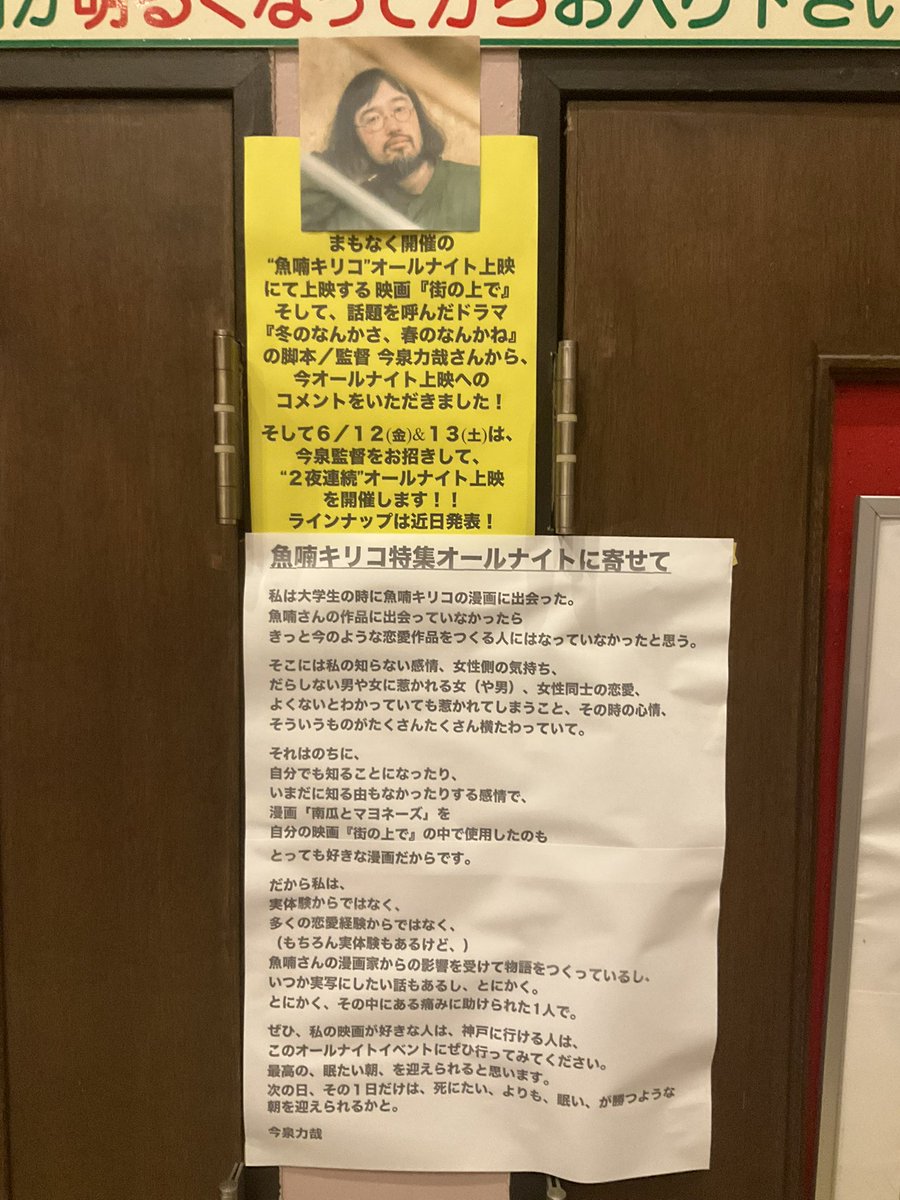 が明るくなってからお入り下さい
まもなく開催の
“魚喃キリコ”オールナイト上映
にて上映する 映画『街の上で』
そして、話題を呼んだドラマ
『冬のなんかさ、春のなんかね』
の脚本／監督 今泉力哉さんから、
今オールナイト上映への
コメントをいただきました！
そして６／１２(金)&１３(土)は、
今泉監督をお招きして、
“２夜連続”オールナイト上映
を開催します！！
ラインナップは近日発表！
魚喃キリコ特集オールナイトに寄せて
私は大学生の時に魚喃キリコの漫画に出会った。
魚喃さんの作品に出会っていなかったら
きっと今のような恋愛作品をつくる人にはなっていなかったと思う。
そこには私の知らない感情、女性側の気持ち、
だらしない男や女に惹かれる女（や男）、女性同士の恋愛、
よくないとわかっていても惹かれてしまうこと、その時の心情、
そういうものがたくさんたくさん横たわっていて。
それはのちに、
自分でも知ることになったり、
いまだに知る由もなかったりする感情で、
漫画「南瓜とマヨネーズ」を
自分の映画『街の上で』の中で使用したのも
とっても好きな漫画だからです。
だから私は、
実体験からではなく、
多くの恋愛経験からではなく、
（もちろん実体験もあるけど、）
魚喃さんの漫画家からの影響を受けて物語をつくっているし、
いつか実写にしたい話もあるし、とにかく。
とにかく、その中にある痛みに助けられた1人で。
ぜひ、私の映画が好きな人は、神戸に行ける人は、
このオールナイトイベントにぜひ行ってみてください。
最高の、眠たい朝、を迎えられると思います。
次の日、その１日だけは、死にたい、よりも、眠い、が勝つような
朝を迎えられるかと。
今泉力哉